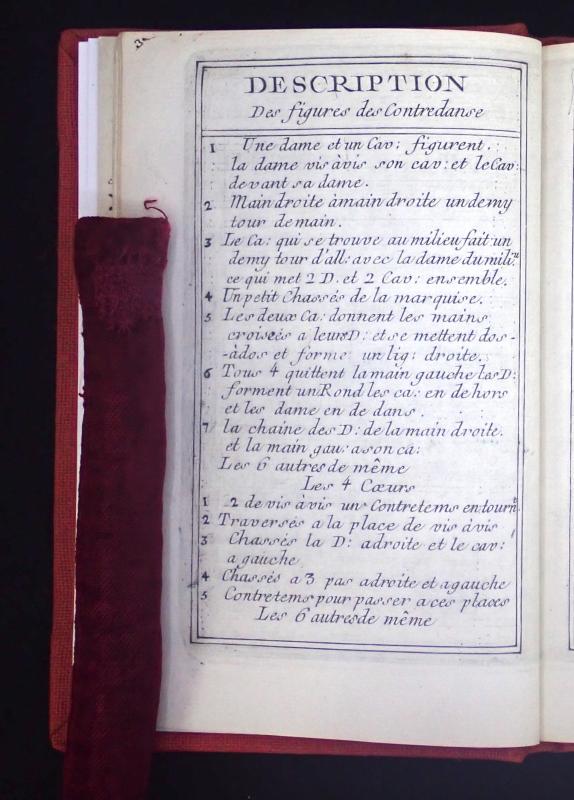 DESCRIPTION
Des figures des Contredanse
1 Une dame et un Cav: figurent.
la dame vis àvis son cav: et le Cav:
devant sa dame.
2 Main droite àmain droite un demy
tour de main.
3 Le Ca: qui se trouve au milieu fait un
demy tour d'all: avec la dame du mili:u
ce qui met 2 D. et 2 Cav: ensemble.
4 Un petit Chassés de la marquise.
5 Les deux Ca: donnent les mains
croisées a leurs D: et se mettent dos-
-àdos et forme un lig: droite.
6 Tous 4 quittent la main gauche las D:
forment un Rond les ca: en de hors
et les dame en de dans.
7 la chaine des D: de la main droite.
et la main gau: a son ca:
Les 6 autres de même
Les 4 Cœurs
1 2 de vis àvis un Contretems en tournt
2 Traversés a la place de vis àvis
3 Chassés la D: adroite et le cav:
a gauche
4 Chassés a 3 pas adroite et agauche
5 Contretems pour passer a ces places
Les 6 autres de même